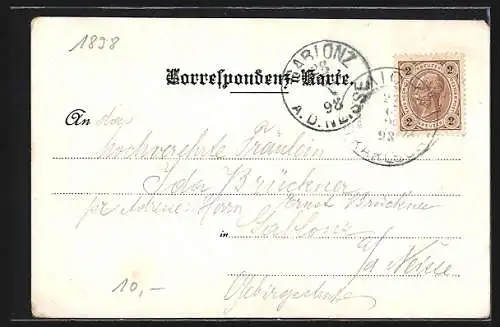 1898
Korrespondenz-Karte.
GABLONZ
98
A.D. NEISSE
2 2
An
hochverehrte Fräulein
Ida Brückner
per Adresse Herrn Ernst Brückner
in Gablonz
a/d Neisse
10,-